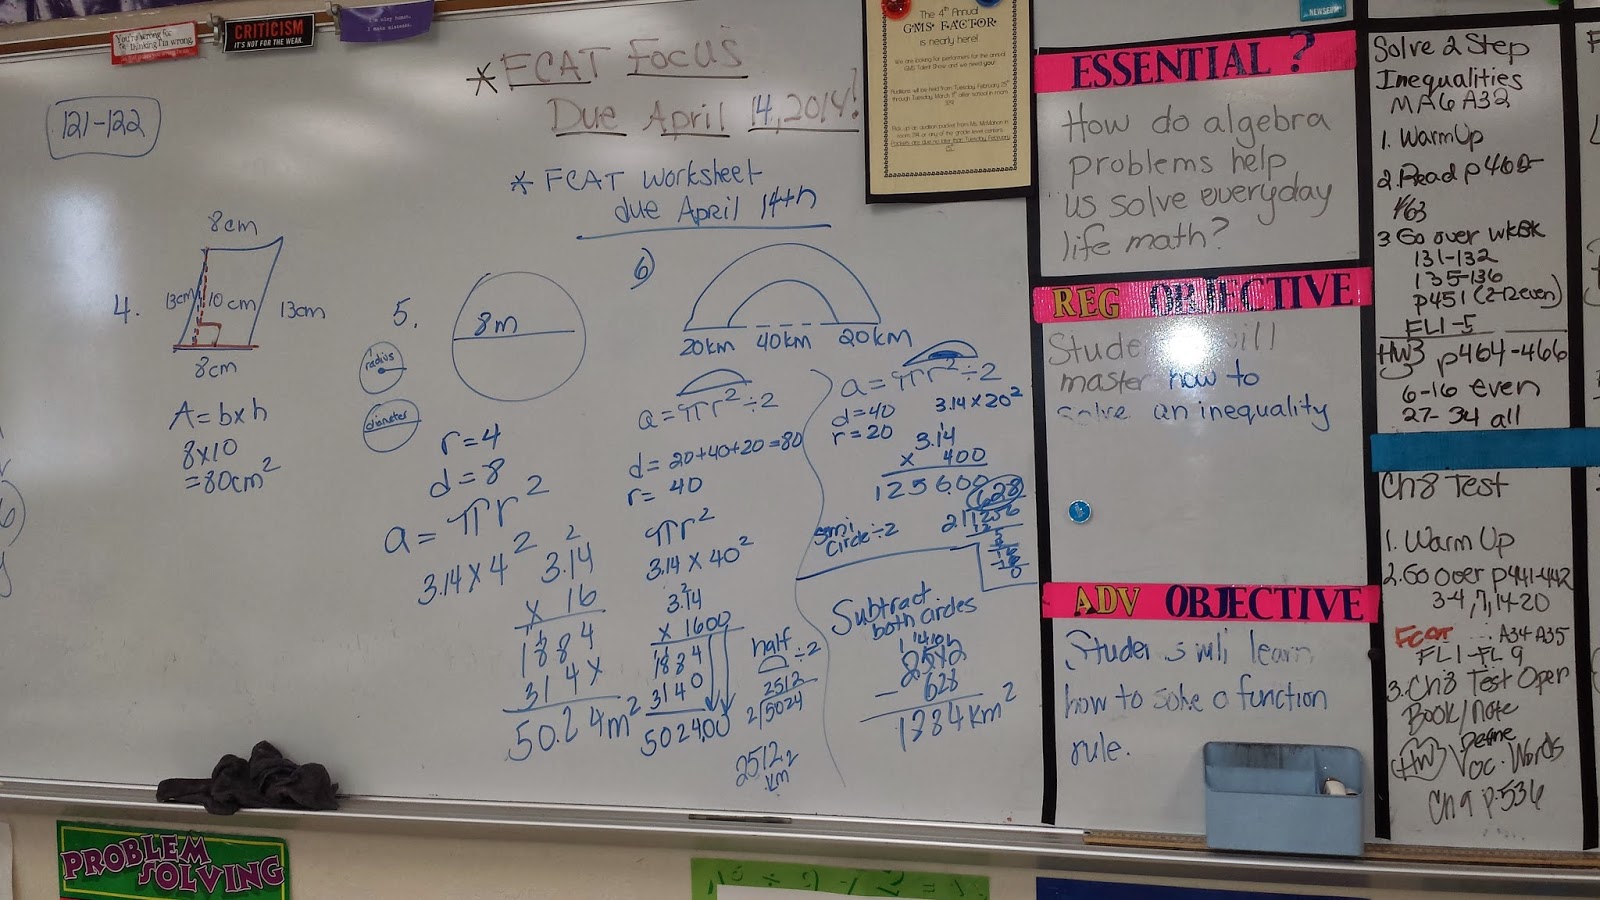 You're wrong for thinking I'm wrong.
CRITICISM
IT'S NOT FOR THE WEAK.
I'm only human,
I make mistakes.
121-122
* FCAT Focus
Due April 14, 2014!
* FCAT Worksheet
due April 14th
4.
8cm
13cm
10cm
13cm
8cm
A = b x h
8x10
= 80cm²
5.
8m
radius
diameter
r = 4
d = 8
a = πr²
3.14 x 4²
3.14
x 16
1884
314x
50.24m²
6)
20km 40km 20km
a = πr² ÷ 2
d = 20+40+20=80
r = 40
πr²
3.14 x 40²
3.14
x 1600
1884
3140
5024.00
half
÷2
2512
2)5024
2512
km²
a = πr² ÷ 2
d = 40
r = 20
3.14 x 20²
3.14
x 400
1256.00
628
2)1256
semi
circle ÷2
Subtract
both circles
2512
- 628
1884km²
The 4th Annual
GMS FACTOR
is nearly here!
We are looking for performers for the annual
GMS Talent Show and we need you!
NEWSEUM
ESSENTIAL ?
How do algebra
problems help
us solve everyday
life math?
REG OBJECTIVE
Students will
master how to
solve an inequality
ADV OBJECTIVE
Students will learn
how to solve a function
rule.
Solve 2 Step
Inequalities
MA6 A32
1. Warm Up
2. Read p460-
463
3 Go over wkbk
131-132
135-136
p451 (2-12 even)
FL1-5
HW3 p464-466
6-16 even
27-34 all
Ch8 Test
1. Warm Up
2. Go Over p441-442
3-4, 7, 14-20
FCAT A34 A35
FL1-FL9
3. Ch8 Test Open
Book/note
HW Define
Voc. Words
Ch 9 p.536
PROBLEM
SOLVING